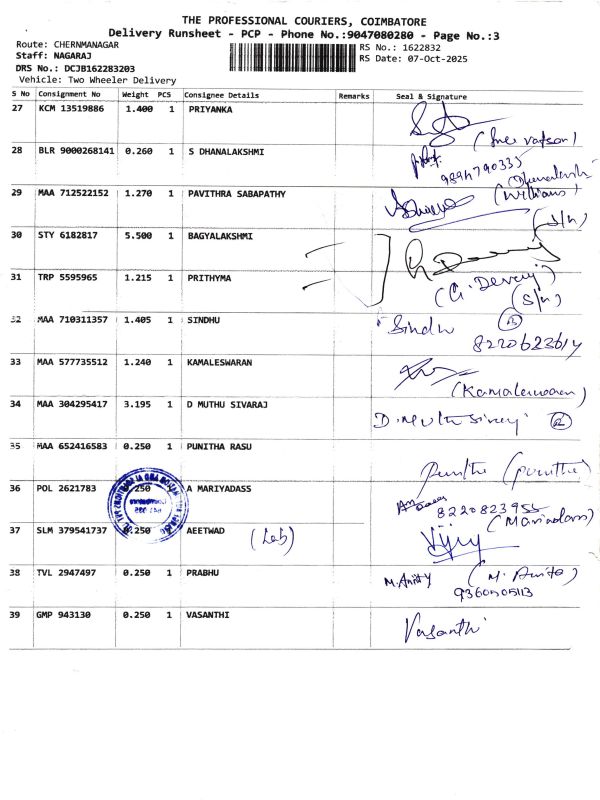 THE PROFESSIONAL COURIERS, COIMBATORE
Delivery Runsheet - PCP - Phone No.:9047080280 - Page No.:3
Route: CHERNMANAGAR
RS No.: 1622832
Staff: NAGARAJ
RS Date: 07-Oct-2025
DRS No.: DCJB162283203
Vehicle: Two Wheeler Delivery
S No Consignment No Weight PCS Consignee Details Remarks Seal & Signature
27 KCM 13519886 1.400 1 PRIYANKA
28 BLR 9000268141 0.260 1 S DHANALAKSHMI
9894790335
29 MAA 712522152 1.270 1 PAVITHRA SABAPATHY
(Williams)
(S/n)
30 STY 6182817 5.500 1 BAGYALAKSHMI
31 TRP 5595965 1.215 1 PRITHYMA
(G. Devaraj)
(S/n)
32 MAA 710311357 1.405 1 SINDHU Sindhu
8220623614
33 MAA 577735512 1.240 1 KAMALESWARAN
(Kamaleswaran)
34 MAA 304295417 3.195 1 D MUTHU SIVARAJ D. Muthu Sivaraj
35 MAA 652416583 0.250 1 PUNITHA RASU
Punitha (punitha)
36 POL 2621783 .250 A MARIYADASS
8220823955
37 SLM 379541737 0.250 AEETWAD (Lab) Vijay
38 TVL 2947497 0.250 1 PRABHU M. Anity (M. Anita)
9360505113
39 GMP 943130 0.250 1 VASANTHI Vasanthi